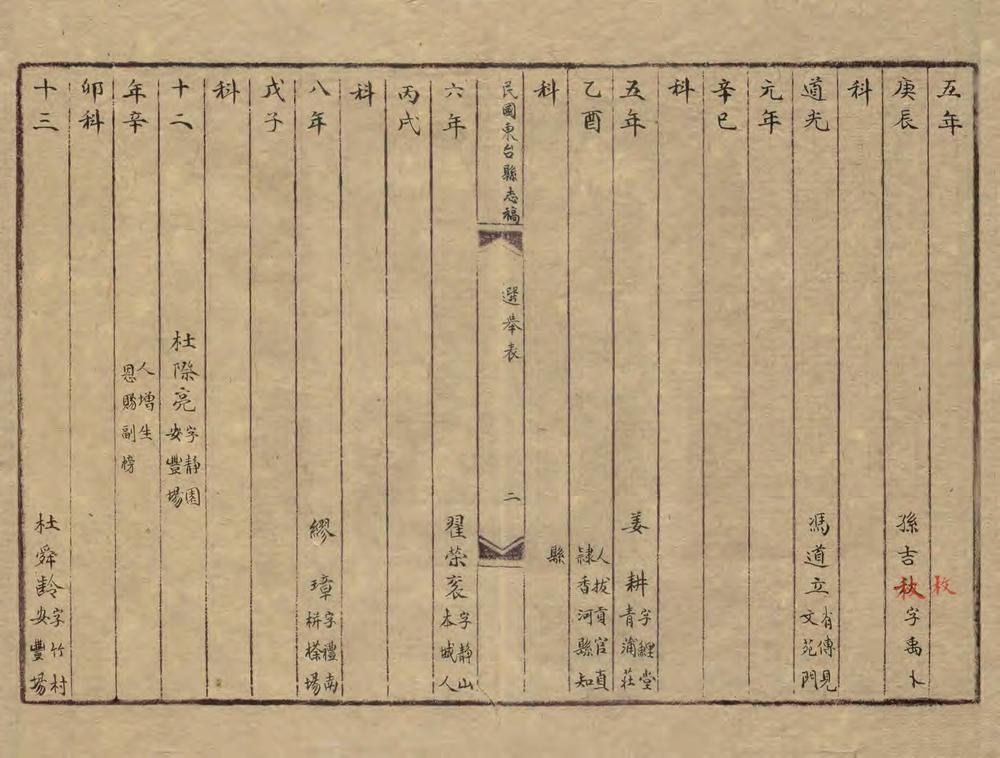 五年 枚
庚辰 孫吉秋 字禹卜
科
道光 馮道立 有傳見文苑門
元年
辛巳
科
五年 姜耕 字鯉堂青蒲莊
乙酉 人拔貢官直隸香河縣知
科 縣
民國東台縣志稿 選舉表 二
六年 翟榮衮 字靜山本城人
丙戌
科
八年 繆璋 字禮南栟搽場
戊子
科
十二 杜際亮 字靜園安豐場
年辛 人增生恩賜副榜
卯科
十三 杜舜齡 字竹村安豐場